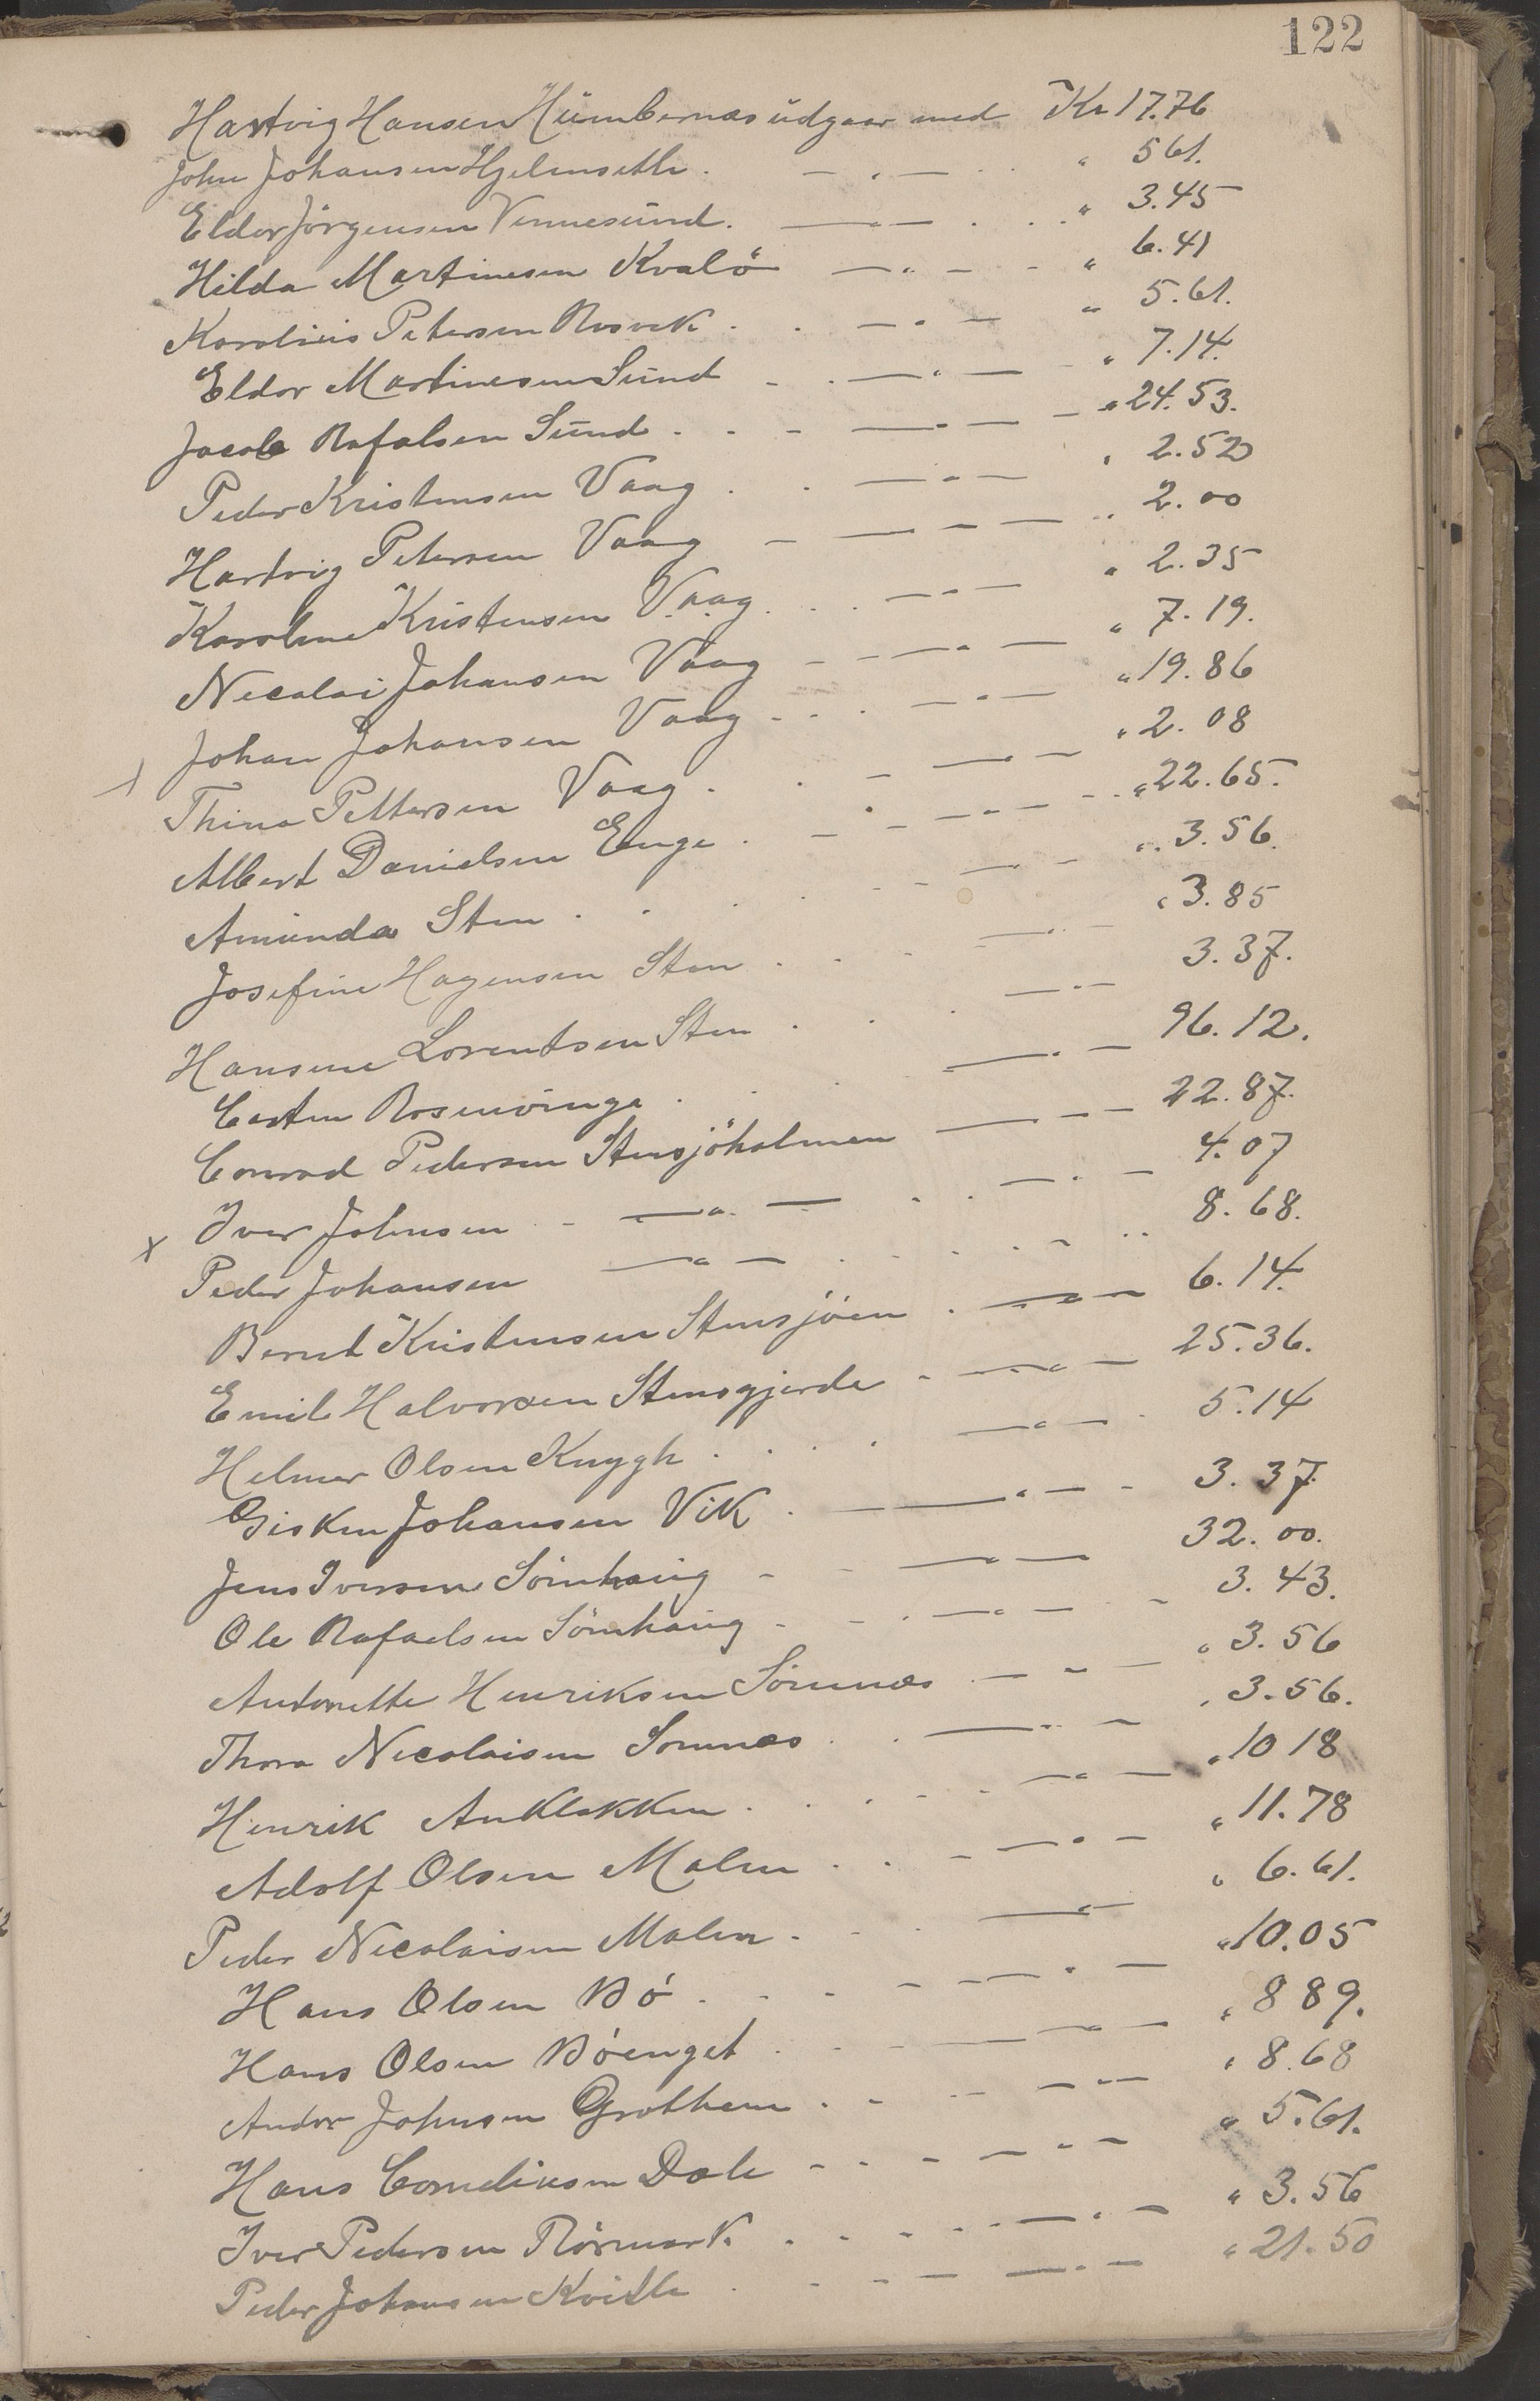 122
Hartvig Hansen Humbernæs udgaar med Kr 17.76
John Johansen Hjelmseth . — " — " 5 61.
Eldor Jörgensen Vennesund. — " — . . " 3.45
Hilda Martinesen Kvalö — " — - " 6.41
Karolius Petersen Rosvik . . — " — " 5.61.
Eldor Martinesen Sund - . — " — " 7.14.
Jacob Rafalsen Sund . - - — " — — " 24.53.
Peder Kristensen Vaag . . — " — " 2.52
Hartvig Petersen Vaag — — " — " 2.00
Karoline Kristensen Vaag . . — " — " 2.35
Nicolai Johansen Vaag - - — " — " 7.19.
Johan Johansen Vaag - . . — " — " 19.86
Thina Pettersen Vaag . . - — " — " 2.08
Albert Danielsen Enge . - - — " — - - " 22.65.
Amunda Sten . . . . - - — " - " 3.56.
Josefine Hagensen Sten . . - — " - " 3.85
Hansine Lorentsen Sten . . . — " — 3.37.
Carten Rosenvinge . . . — " — 96.12.
Conrad Pedersen Stensjöholmen — " — 22.87.
Iver Johnsen - — " — . . — " — 4.07
x Peder Johansen — " — . . . . - . . 8.68.
Bernt Kristensen Stensjöen . — " — 6.14.
Emil Halvorsen Stensgjerde - — " — 25.36.
Helmer Olsen Knygh . . . . — " — . 5.14
Gisken Johansen Vik . — " — - 3.37
Jens Iversen Sömhaug - - — " — 32.00.
Ole Rafaelsen Sömhaug - - . — " — - 3.43.
Antonette Henriksen Sömnæs — " — " 3.56
Thora Nicolaisen Somnæs . . — " — " 3.56.
Henrik Anklakken . . . - — " — " 10 18
Adolf Olsen Malm . . - — " — " 11.78
Peder Nicolaisen Malm . - — " — " 6.61.
Hans Olsen Bö . - - - — " — " 10.05
Hans Olsen Böenget . - - — " — " 8 89.
Andor Johnsen Grothem . - - — " — " 8.68
Hans Corneliusen Dale - - - — " — " 5.61.
Iver Pedersen Rörmark . - - - — " — " 3.56
Peder Johansen Kvitle . - - — — " — " 21.50